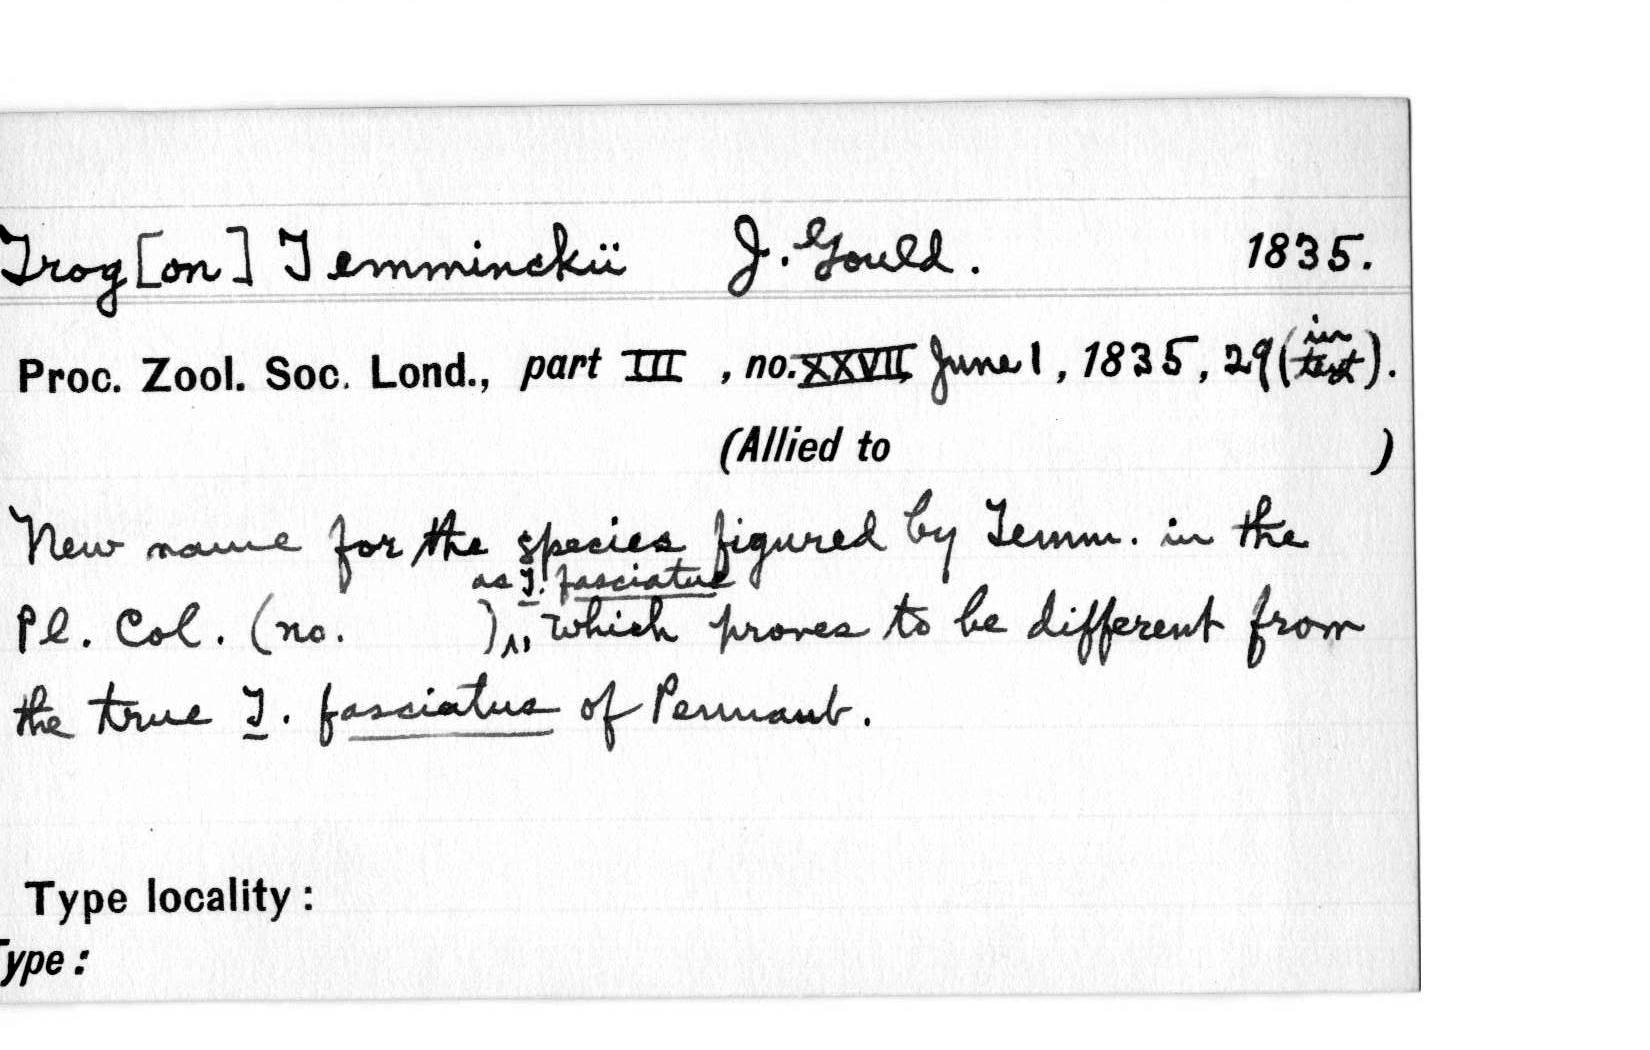 Trog[on] Temminckii J. Gould. 1835.
Proc. Zool. Soc. Lond., part III, no. XXVII, June 1, 1835, 29 (in text).
(Allied to )
New name for the species figured by Temm. in the
as T. fasciatus
Pl. Col. (no. ), which proves to be different from
the true T. fasciatus of Pennant.
Type locality:
Type: